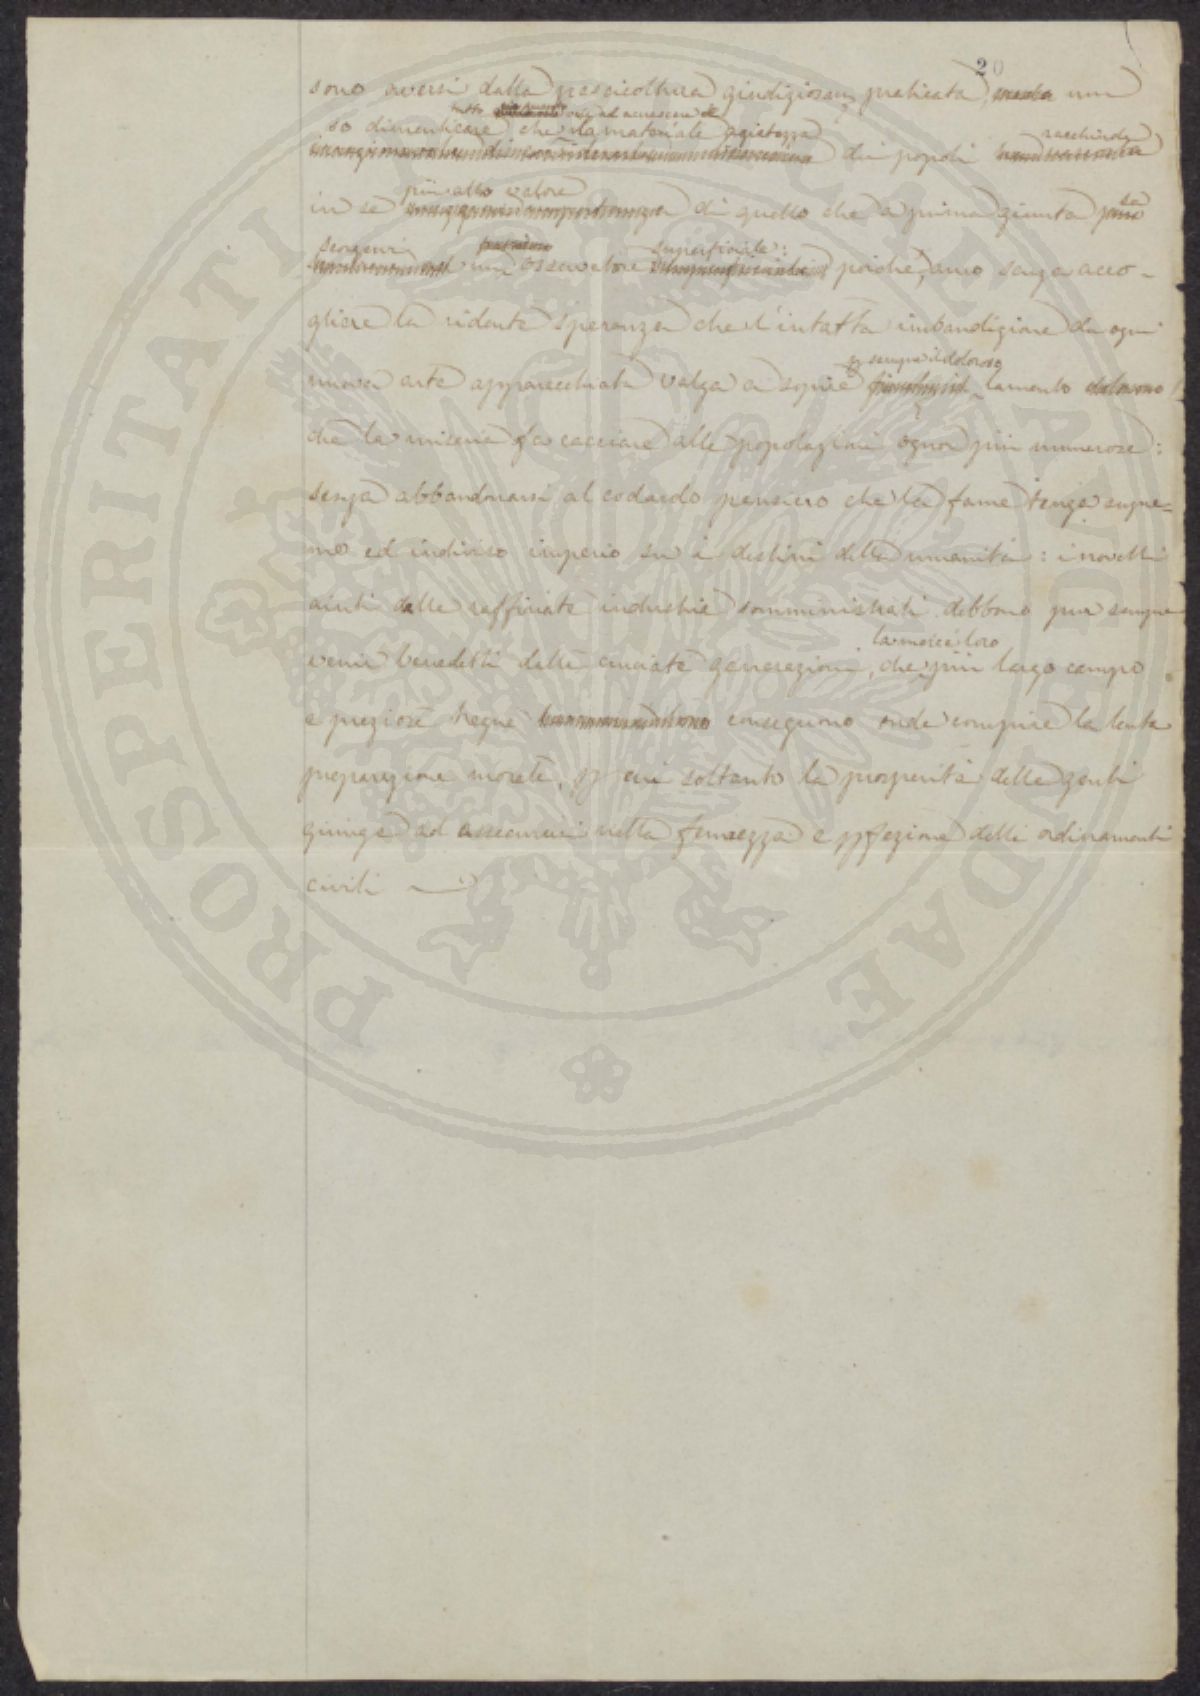 20
sono aversi dalla pescicoltura giudiziosam praticata, non
tutto ciò ad accrescere
so dimenticare che la materiale agiatezza dei popoli racchiuda
in sé più alto valore di quello che a prima giunta sa
scorgervi un osservatore superficiale: poiché, anco senza acco-
gliere la ridente speranza che l'intatta imbandigione da ogni
nuova arte apparecchiata valga a sopire p sempre il doloroso lamento
che la miseria fa cacciare alle popolazioni ognor più numerose:
senza abbandonarsi al codardo pensiero che la fame tenga supre-
mo ed indiviso imperio su i destini della umanità: i novelli
aiuti dalle raffinate industrie somministrati debbono pur sempre
venir benedetti dalle cruciate generazioni, che la mercé loro più largo campo
e preziose tregue conseguono onde compire la lenta
preparazione morale, p cui soltanto la prosperità delle genti
giunge ad assecurarsi nella fermezza e pfezione delli ordinamenti
civili
PROSPERITATI PUBLICAE AUGENDAE